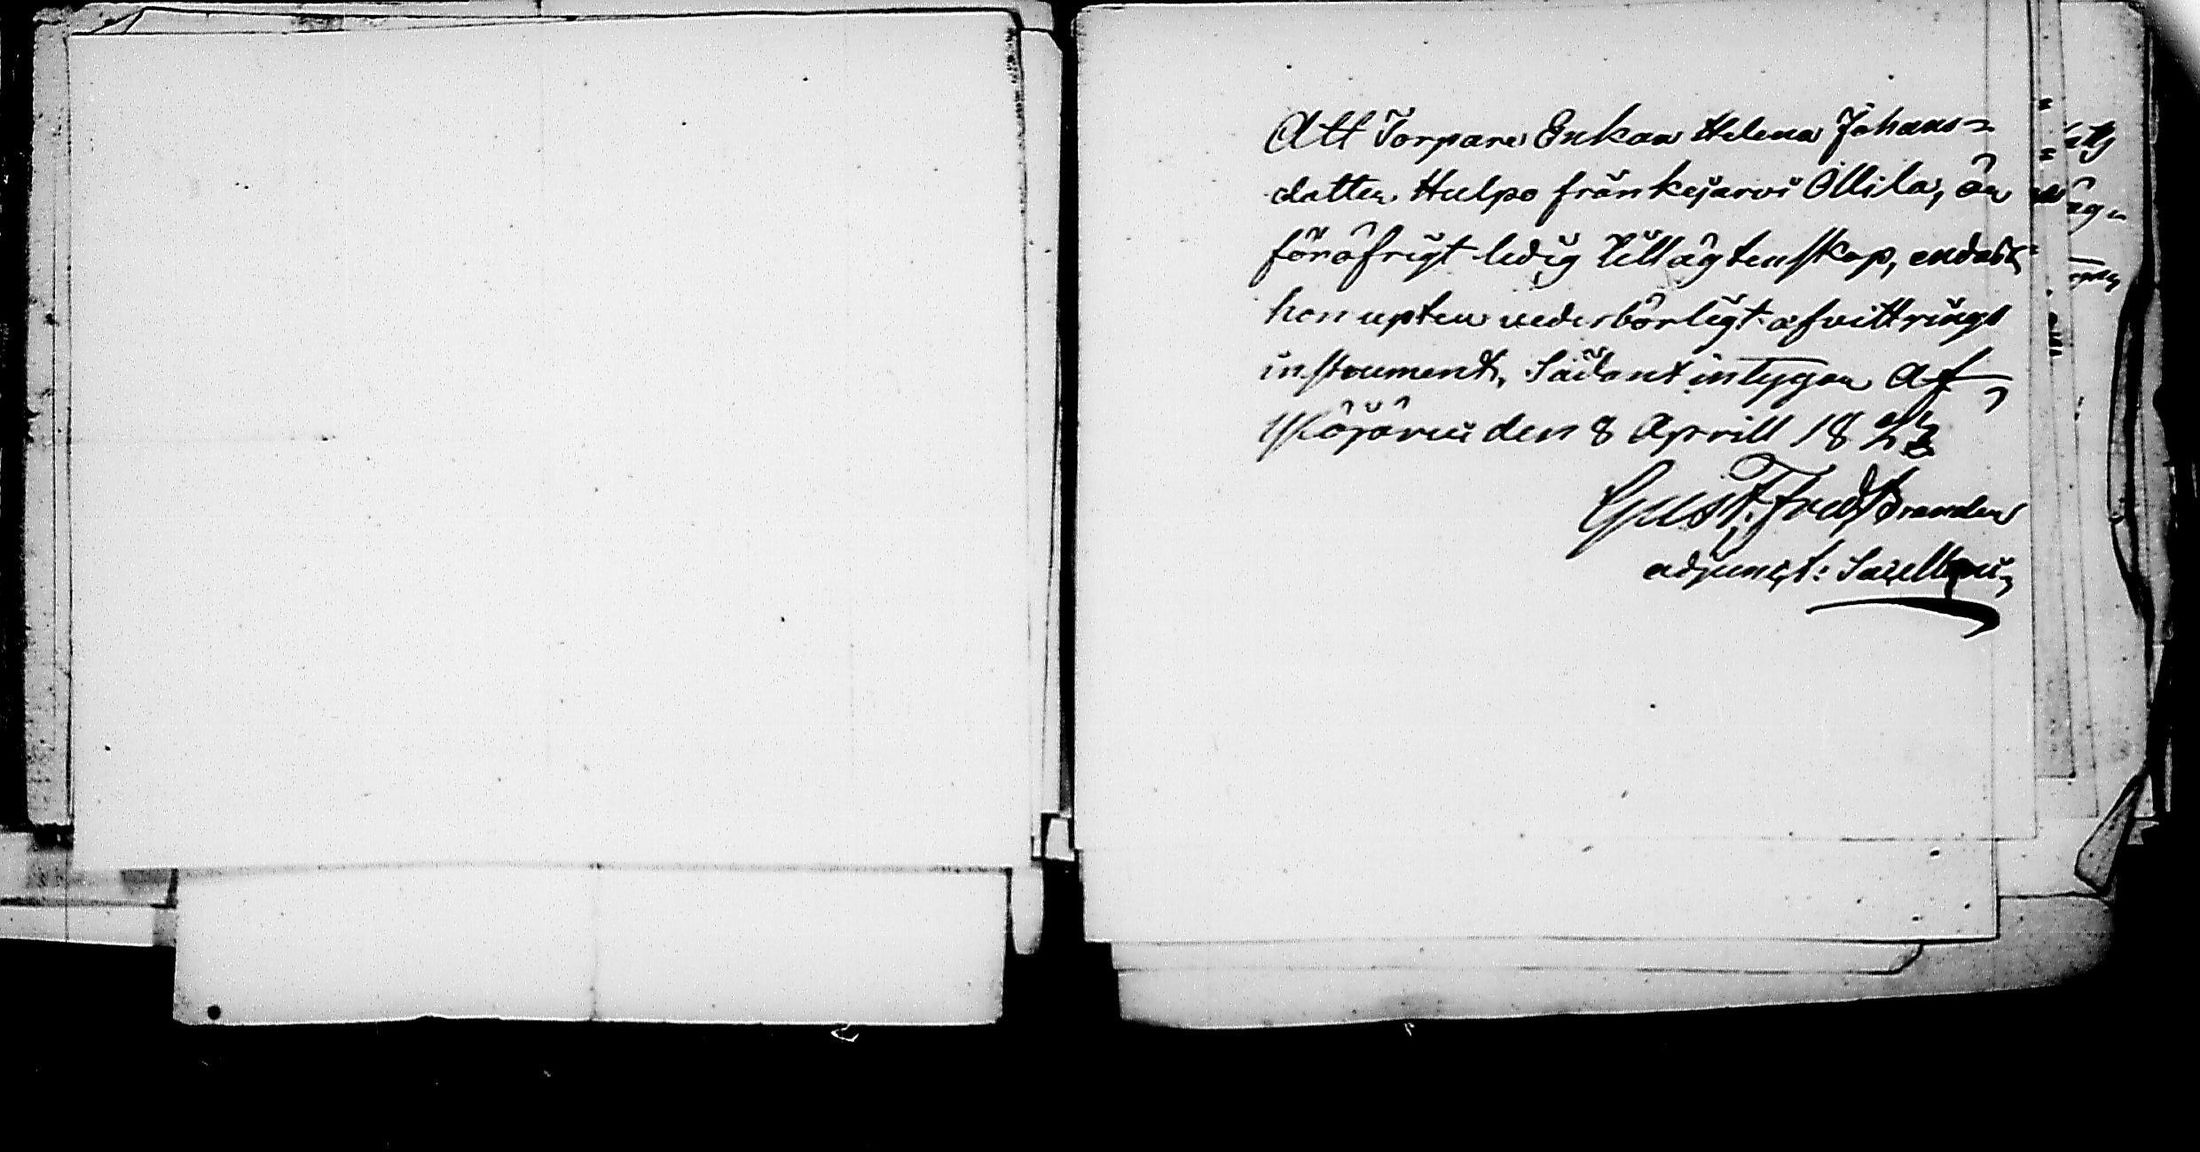 Att Torpare Enkan Helena Johans=
dotter Hulpo från kejärvi Ollila, är
föröfrigt ledig till ägtenskap, endast
hon upter vederbörligt afvittrings
instrument, Sådant intygar Af
den 8 Aprill 18
Gust: Fred Brander
adjunct: Sacellani